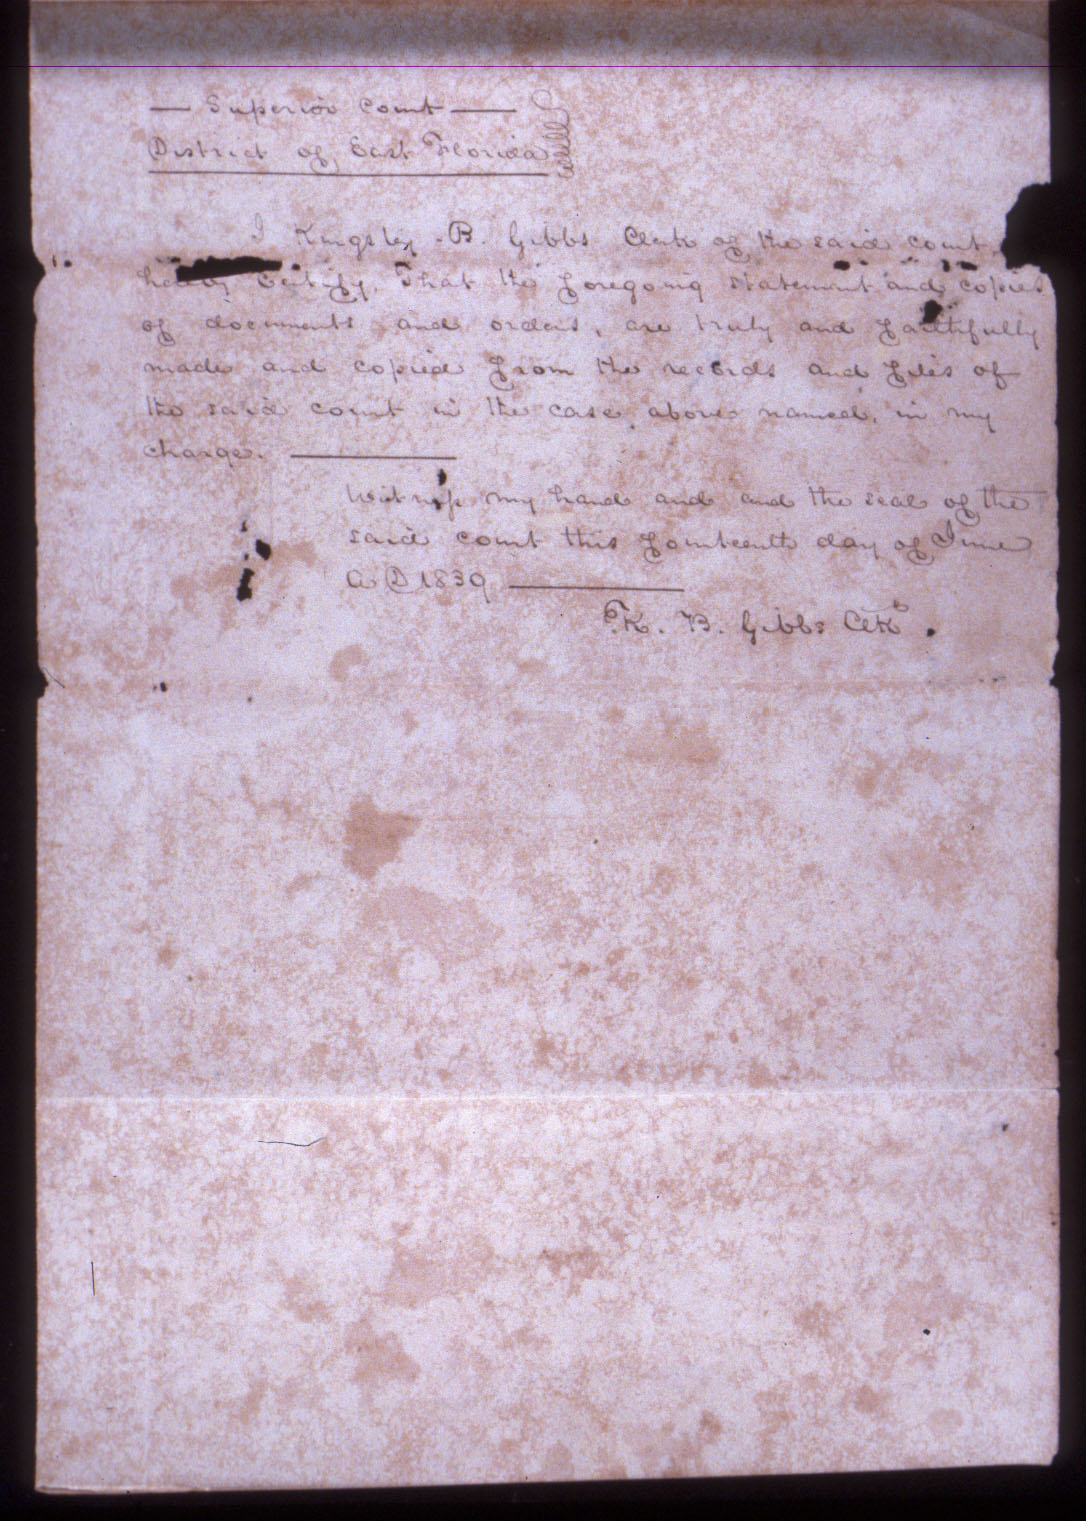 — Superior Court —
District of East Florida
I Kingsley B. Gibbs Clerk of the said court
hereby Certify, That the foregoing statement and copies
of documents and orders, are truly and faithfully
made and copied from the records and files of
the said court in the case above named, in my
charge. —
Witness my hand and and the seal of the
said court this fourteenth day of June
A D 1839 —
K. B. Gibbs Clk.